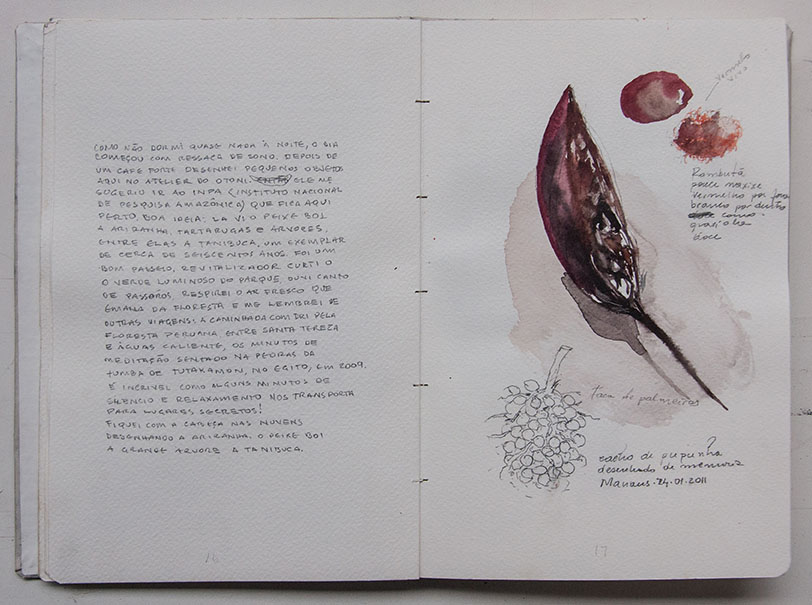 COMO NÃO DORMI QUASE NADA À NOITE, O DIA
COMEÇOU COM RESSACA DE SONO. DEPOIS DE
UM CAFÉ FORTE DESENHEI PEQUENOS OBJETOS
AQUI NO ATELIER DO OTONI. ELE ME
SUGERIU IR AO INPA (INSTITUTO NACIONAL
DE PESQUISA AMAZÔNICA) QUE FICA AQUI
PERTO, BOA IDEIA: LÁ VI O PEIXE BOI
A ARIRANHA, TARTARUGAS E ÁRVORES,
ENTRE ELAS A TANIBUCA, UM EXEMPLAR
DE CERCA DE SEISCENTOS ANOS. FOI UM
BOM PASSEIO, REVITALIZADOR CURTI O
O VERDE LUMINOSO DO PARQUE OUVI CANTO
DE PÁSSAROS RESPIREI O AR FRESCO QUE
EMANA DA FLORESTA E ME LEMBREI DE
OUTRAS VIAGENS: A CAMINHADA COM DRI PELA
FLORESTA PERUANA ENTRE SANTA TEREZA
E ÁGUAS CALIENTE, OS MINUTOS DE
MEDITAÇÃO SENTADO NA PEDRAS DA
TUMBA DE TUTAKAMON, NO EGITO, EM 2009.
É INCRIVEL COMO ALGUNS MINUTOS DE
SILENCIO E RELAXAMENTO NOS TRANSPORTA
PARA LUGARES SECRETOS!
FIQUEI COM A CABEÇA NAS NUVENS
DESENHANDO A ARIRANHA, O PEIXE BOI
A GRANDE ARVORE A TANIBUCA.
16
vermelho
vivo
Rambutã
parece maxixe
vermelho por fora
branco por dentro
como
doce
de palmeiras
cacho de pupunha
desenhado de memoria
Manaus. 24.01.2011
17